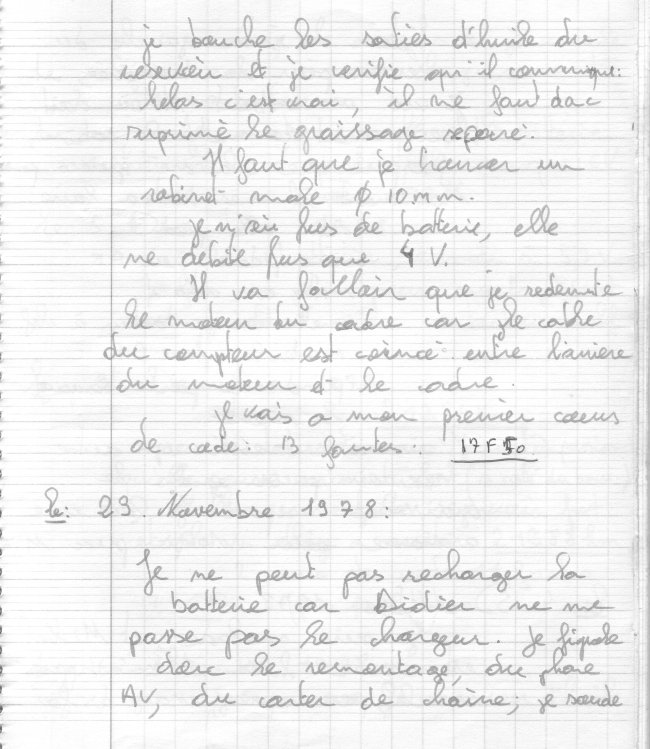 je bouche les soties d'huile du
reservoir et je verifie qu'il communique:
helas c'est vrai, il me faut dac
suprimé le graissage séparé.
Il faut que je trouver un
robinet male φ 10 mm.
je n'ai pus de batterie, elle
ne debite pus que 4 V.
Il va falloir que je redemonte
le moteur du cadre car le cable
du compteur est coincé entre l'arriere
du moteur et le cadre.
je vais a mon premier cours
de code: 13 fautes. 17F50
le: 29. Novembre 1978:
Je ne peut pas recharger la
batterie car Didier ne me
passe pas le chargeur. je fignole
donc le remontage, du phare
AV, du carter de chaine; je soude